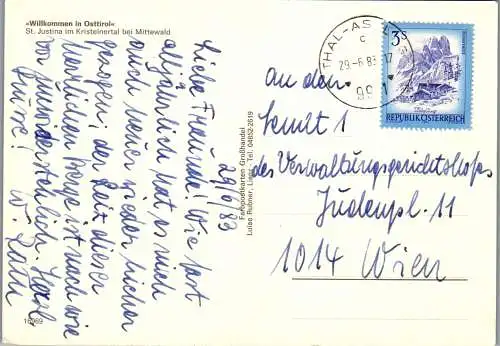 »Willkommen in Osttirol«
St. Justina im Kristeinertal bei Mittewald
29/6/83
Liebe Freunde! Wie fast
alljährlich hat es mich
auch heuer wieder hieher
gezogen; der Reiz dieser
herrlichen Berge ist nach wie
vor unwiderstehlich. Herzl.
Grüße!
W.
Farbpostkarten Großhandel
Luise Rubner, Lienz, Tel. 04852-2819
16069
THAL-AS
c
29-6.83-17
991
3S
REPUBLIK ÖSTERREICH
An den
Senat 1
des Verwaltungsgerichtshofes
Judenpl. 11
1014 Wien